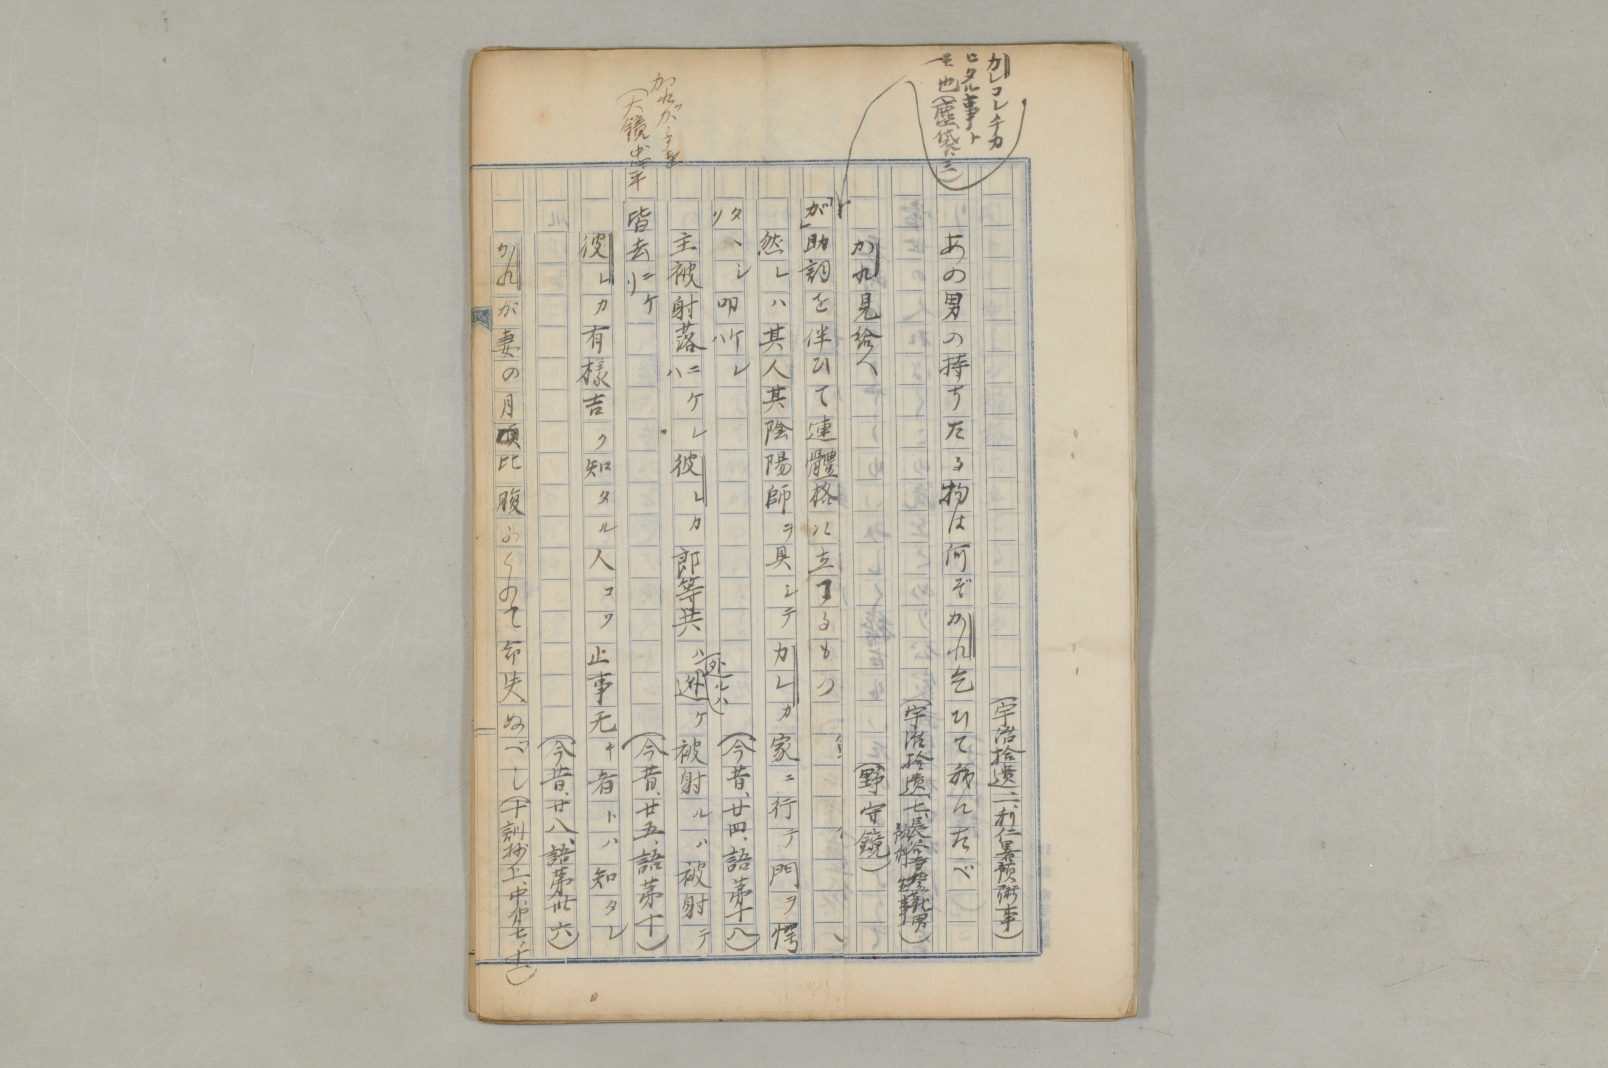 カレコレチカ
ヒタル事ト
モ也(塵袋三)
(宇治拾遺一、利仁暑預粥事)
あの男の持ちたる物は何ぞかれ乞ひて我にたべ
(宇治拾遺七、長谷寺参籠男
かれ見給へ(野守鏡)
が助詞を伴ひて連體格に立つるもの
然レハ其人其陰陽師ヲ具シテカレカ家ニ行テ門ヲ愕
タヽシ叩ケレハ(今昔、廿四、語第十八)
主被射落ニケレハ彼レカ郎等共ハ逃ケ被射ルハ被射テ
皆去ニケリ(今昔、廿五、語第十)
(大鏡忠平
彼レカ有樣吉ク知タル人コソ止事无キ者トハ知タレ
(今昔、廿八、語第卅六)
かれが妻の月比腹ふくのて命失ぬべし(十訓抄上、中、第七ノ十)